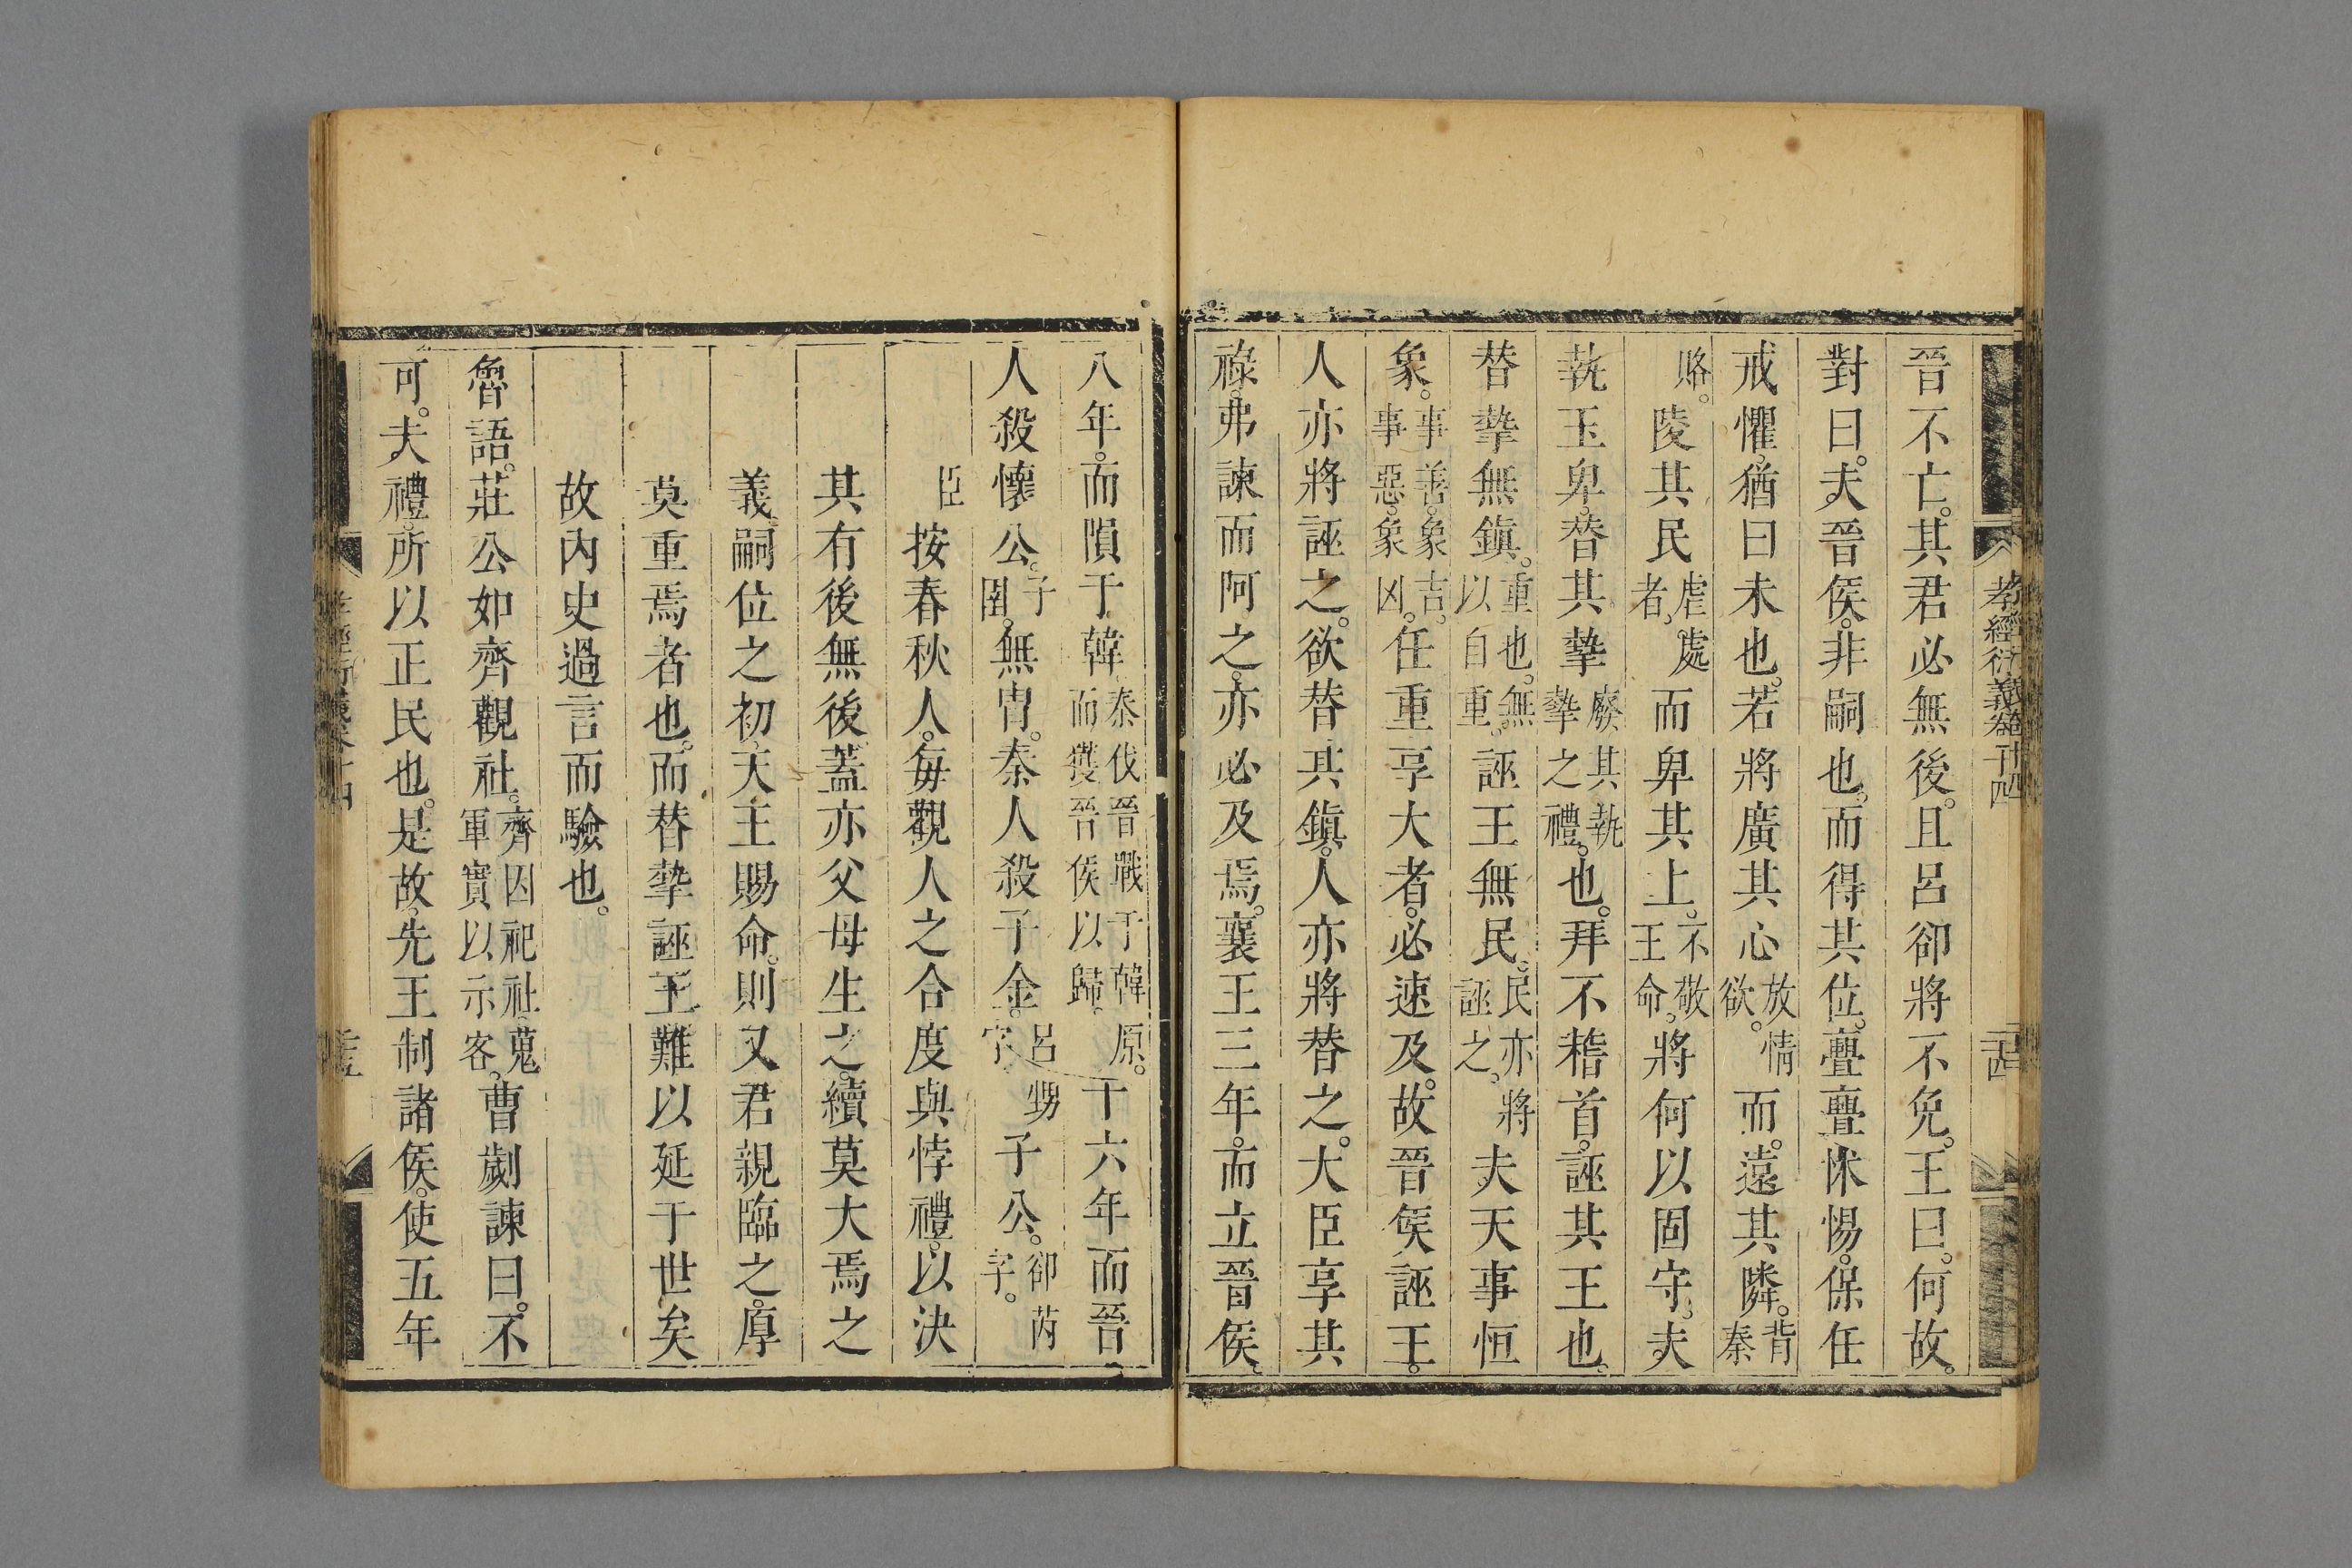 孝經衍義卷十四
二十四
晉不亡。其君必無後。且呂郤將不免。王曰。何故。
對曰。夫晉侯。非嗣也。而得其位。亹亹怵惕。保任
戒懼。猶曰未也。若將廣其心放情欲。而遠其隣。背秦
賂。陵其民虐處者。而卑其上。不敬王命。將何以固守。夫
執玉卑。替其摯廢其執摯之禮。也。拜不稽首。誣其王也。
替摯無鎮。重也。無以自重。誣王無民。民亦將誣之。夫天事恒
象。事善。象吉。事惡。象凶。任重享大者。必速及。故晉侯誣王。
人亦將誣之。欲替其鎮。人亦將替之。大臣享其
祿。弗諫而阿之。亦必及焉。襄王三年。而立晉侯。
八年。而隕于韓秦伐晉戰于韓原。而獲晉侯以歸。十六年而晉
人殺懷公。子圉。無胄。秦人殺子金。呂甥字。子公。郤芮字。
臣按春秋人。每觀人之合度與悖禮。以決
其有後無後蓋亦父母生之。續莫大焉之
義嗣位之初天王賜命。則又君親臨之。厚
莫重焉者也。而替摯誣王難以延于世矣
故內史過言而驗也。
魯語。莊公如齊觀社。齊因祀社。蒐軍實以示客。曹劌諫曰。不
可。夫禮。所以正民也。是故。先王制諸侯。使五年